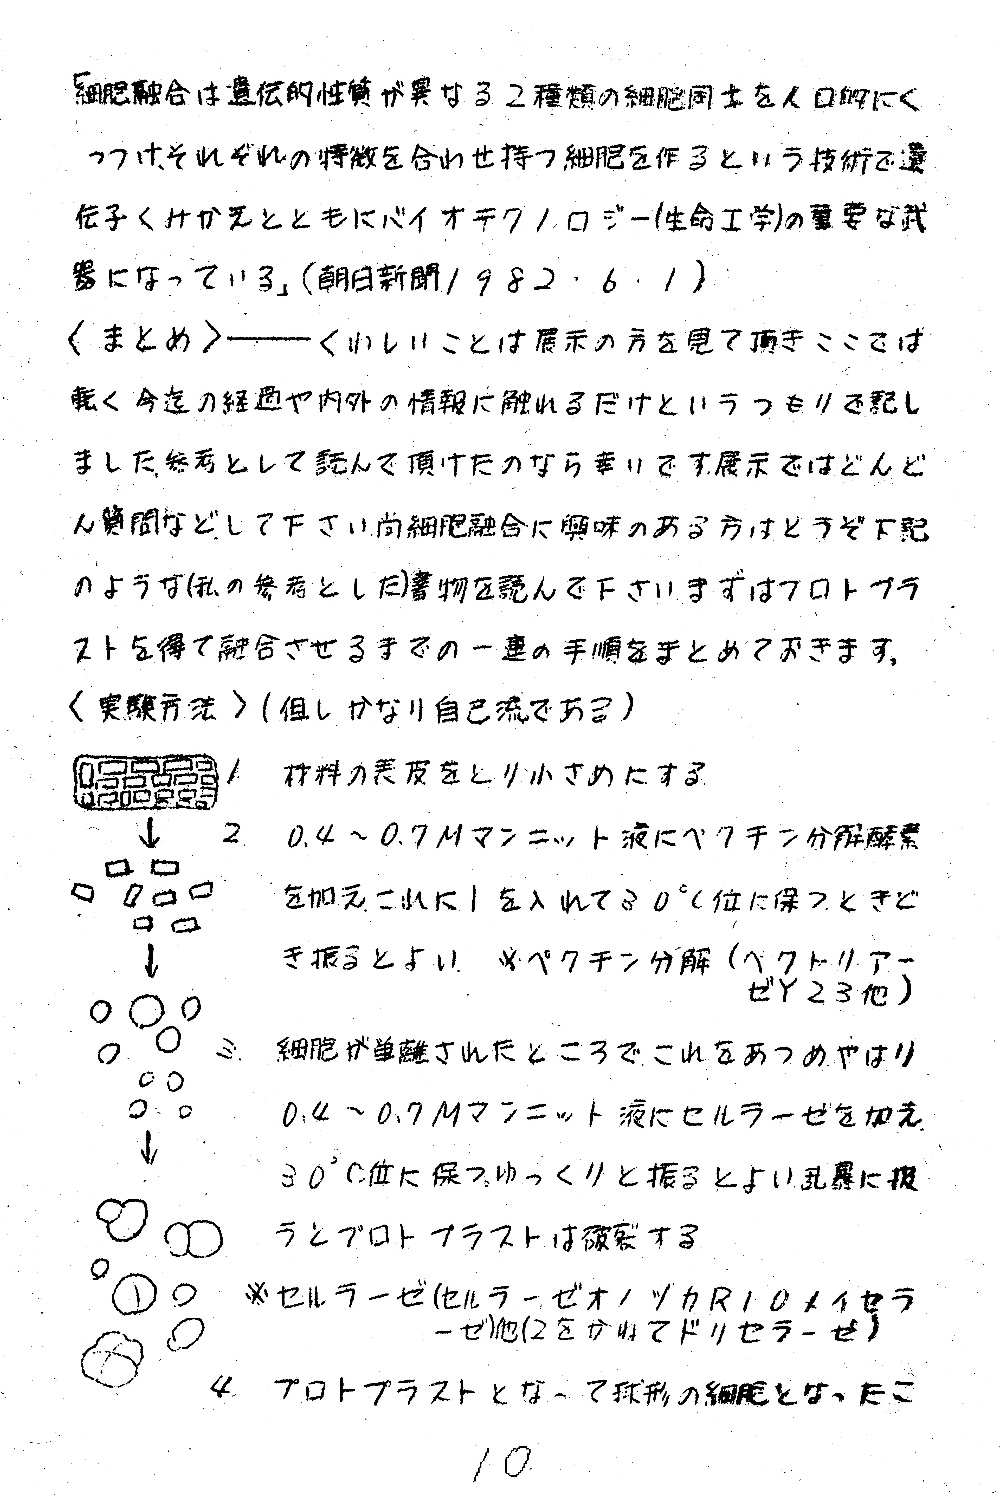 「細胞融合は遺伝的性質が異なる2種類の細胞同士を人口的にく
っつけ、それぞれの特徴を合わせ持つ細胞を作るという技術で遺
伝子くみかえとともにバイオテクノロジー(生命工学)の重要な武
器になっている」(朝日新聞1982.6.1)
〈まとめ〉――くわしいことは展示の方を見て頂きここでは
軽く今迄の経過や内外の情報に触れるだけというつもりで記し
ました.参考として読んで頂けたのなら幸いです.展示ではどんど
ん質問などして下さい.尚細胞融合に興味のある方はどうぞ下記
のような(私の参考とした)書物を読んで下さい.まずはプロトプラ
ストを得て融合させるまでの一連の手順をまとめておきます。
〈実験方法〉(但しかなり自己流である)
1 材料の表皮をとり小さめにする
2. 0.4~0.7Mマンニット液にペクチン分解酵素
を加え.これに1を入れて30℃位に保つ.ときど
き振るとよい. ※ペクチン分解(ペクトリアー
ゼY23他)
3. 細胞が単離されたところでこれをあつめやはり
0.4~0.7Mマンニット液にセルラーゼを加え.
30℃位に保つ.ゆっくりと振るとよい.乱暴に扱
うとプロトプラストは破裂する
※セルラーゼ(セルラーゼオノヅカR10メイセラ
ーゼ)他(2をかねてドリセラーゼ)
4. プロトプラストとなって球形の細胞となったこ
10